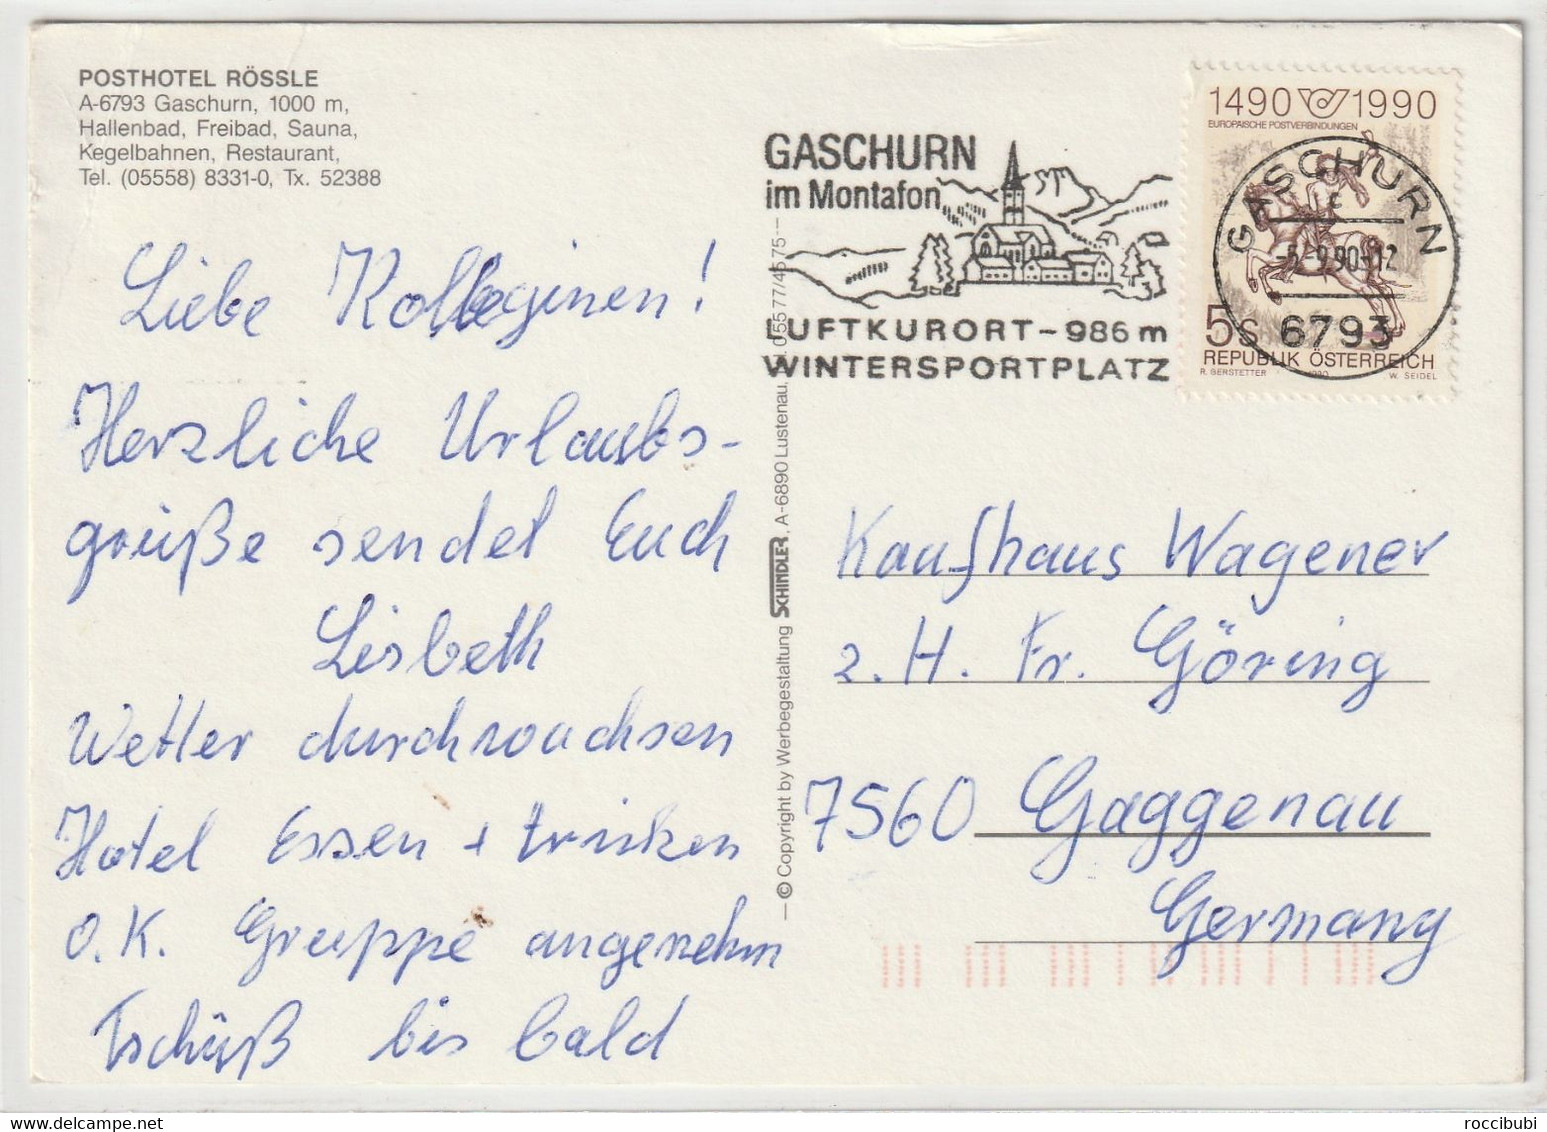 POSTHOTEL RÖSSLE
A-6793 Gaschurn, 1000 m,
Hallenbad, Freibad, Sauna,
Kegelbahnen, Restaurant,
Tel. (05558) 8331-0, Tx. 52388
Liebe Kolleginen!
Herzliche Urlaubs-
grüße sendet Euch
Lisbeth
Wetter durchwachsen
Hotel Essen + trinken
O.K. Gruppe angenehm
Tschüß bis bald
© Copyright by Werbegestaltung SCHINDLER, A-6890 Lustenau, 05577/4575
GASCHURN
im Montafon
LUFTKURORT - 986 m
WINTERSPORTPLATZ
1490 1990
EUROPÄISCHE POSTVERBINDUNGEN
GASCHURN
c
-5.-9.90-12
6793
5 S
REPUBLIK ÖSTERREICH
R. GERSTETTER 1990 W. SEIDEL
Kaufhaus Wagener
z. H. Fr. Göring
7560 Gaggenau
Germany
roccibubi